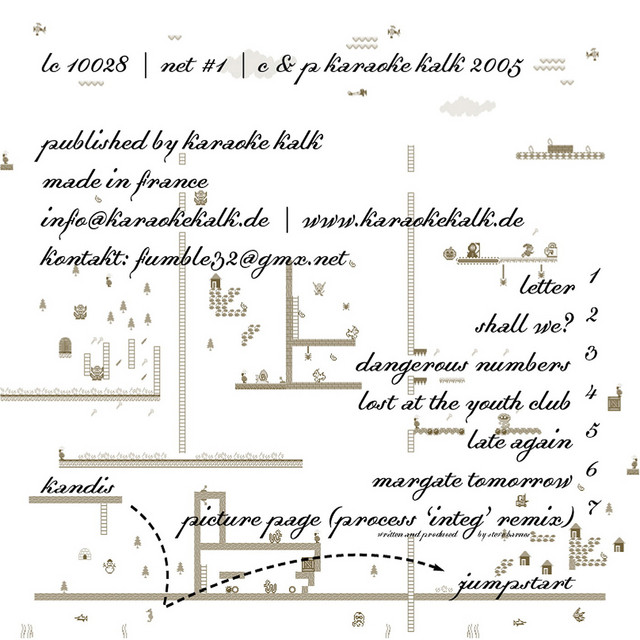 lc 10028 | net #1 | c & p karaoke kalk 2005
published by karaoke kalk
made in france
info@karaokekalk.de | www.karaokekalk.de
kontakt: fumble32@gmx.net
letter 1
shall we? 2
dangerous numbers 3
lost at the youth club 4
late again 5
margate tomorrow 6
picture page (process 'integ' remix) 7
written and produced by
kandis
jumpstart